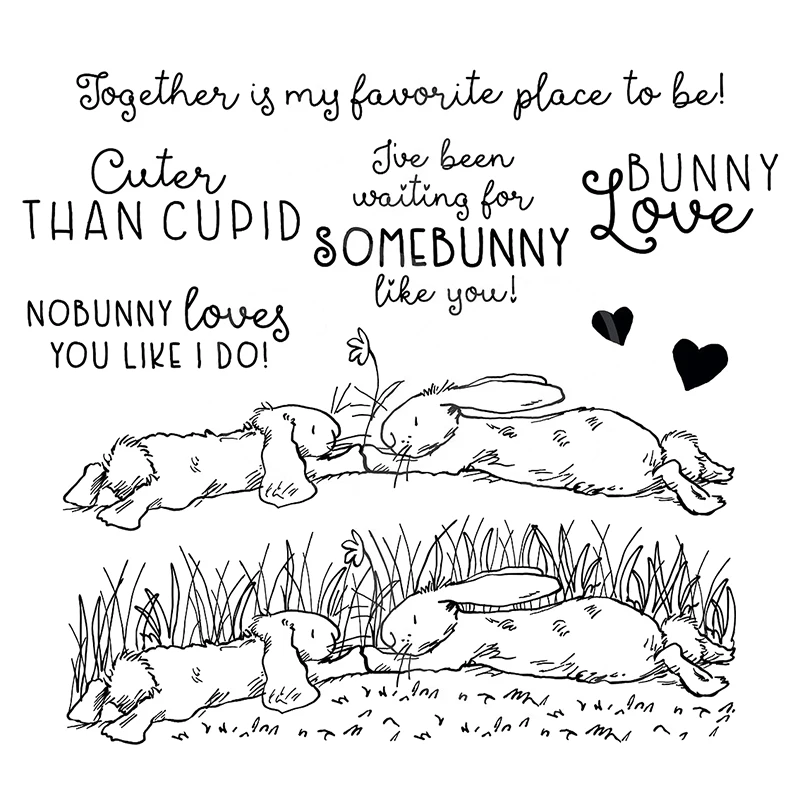 Together is my favorite place to be!
Cuter
THAN CUPID
I've been
waiting for
SOMEBUNNY
like you!
BUNNY
Love
NOBUNNY loves
YOU LIKE I DO!